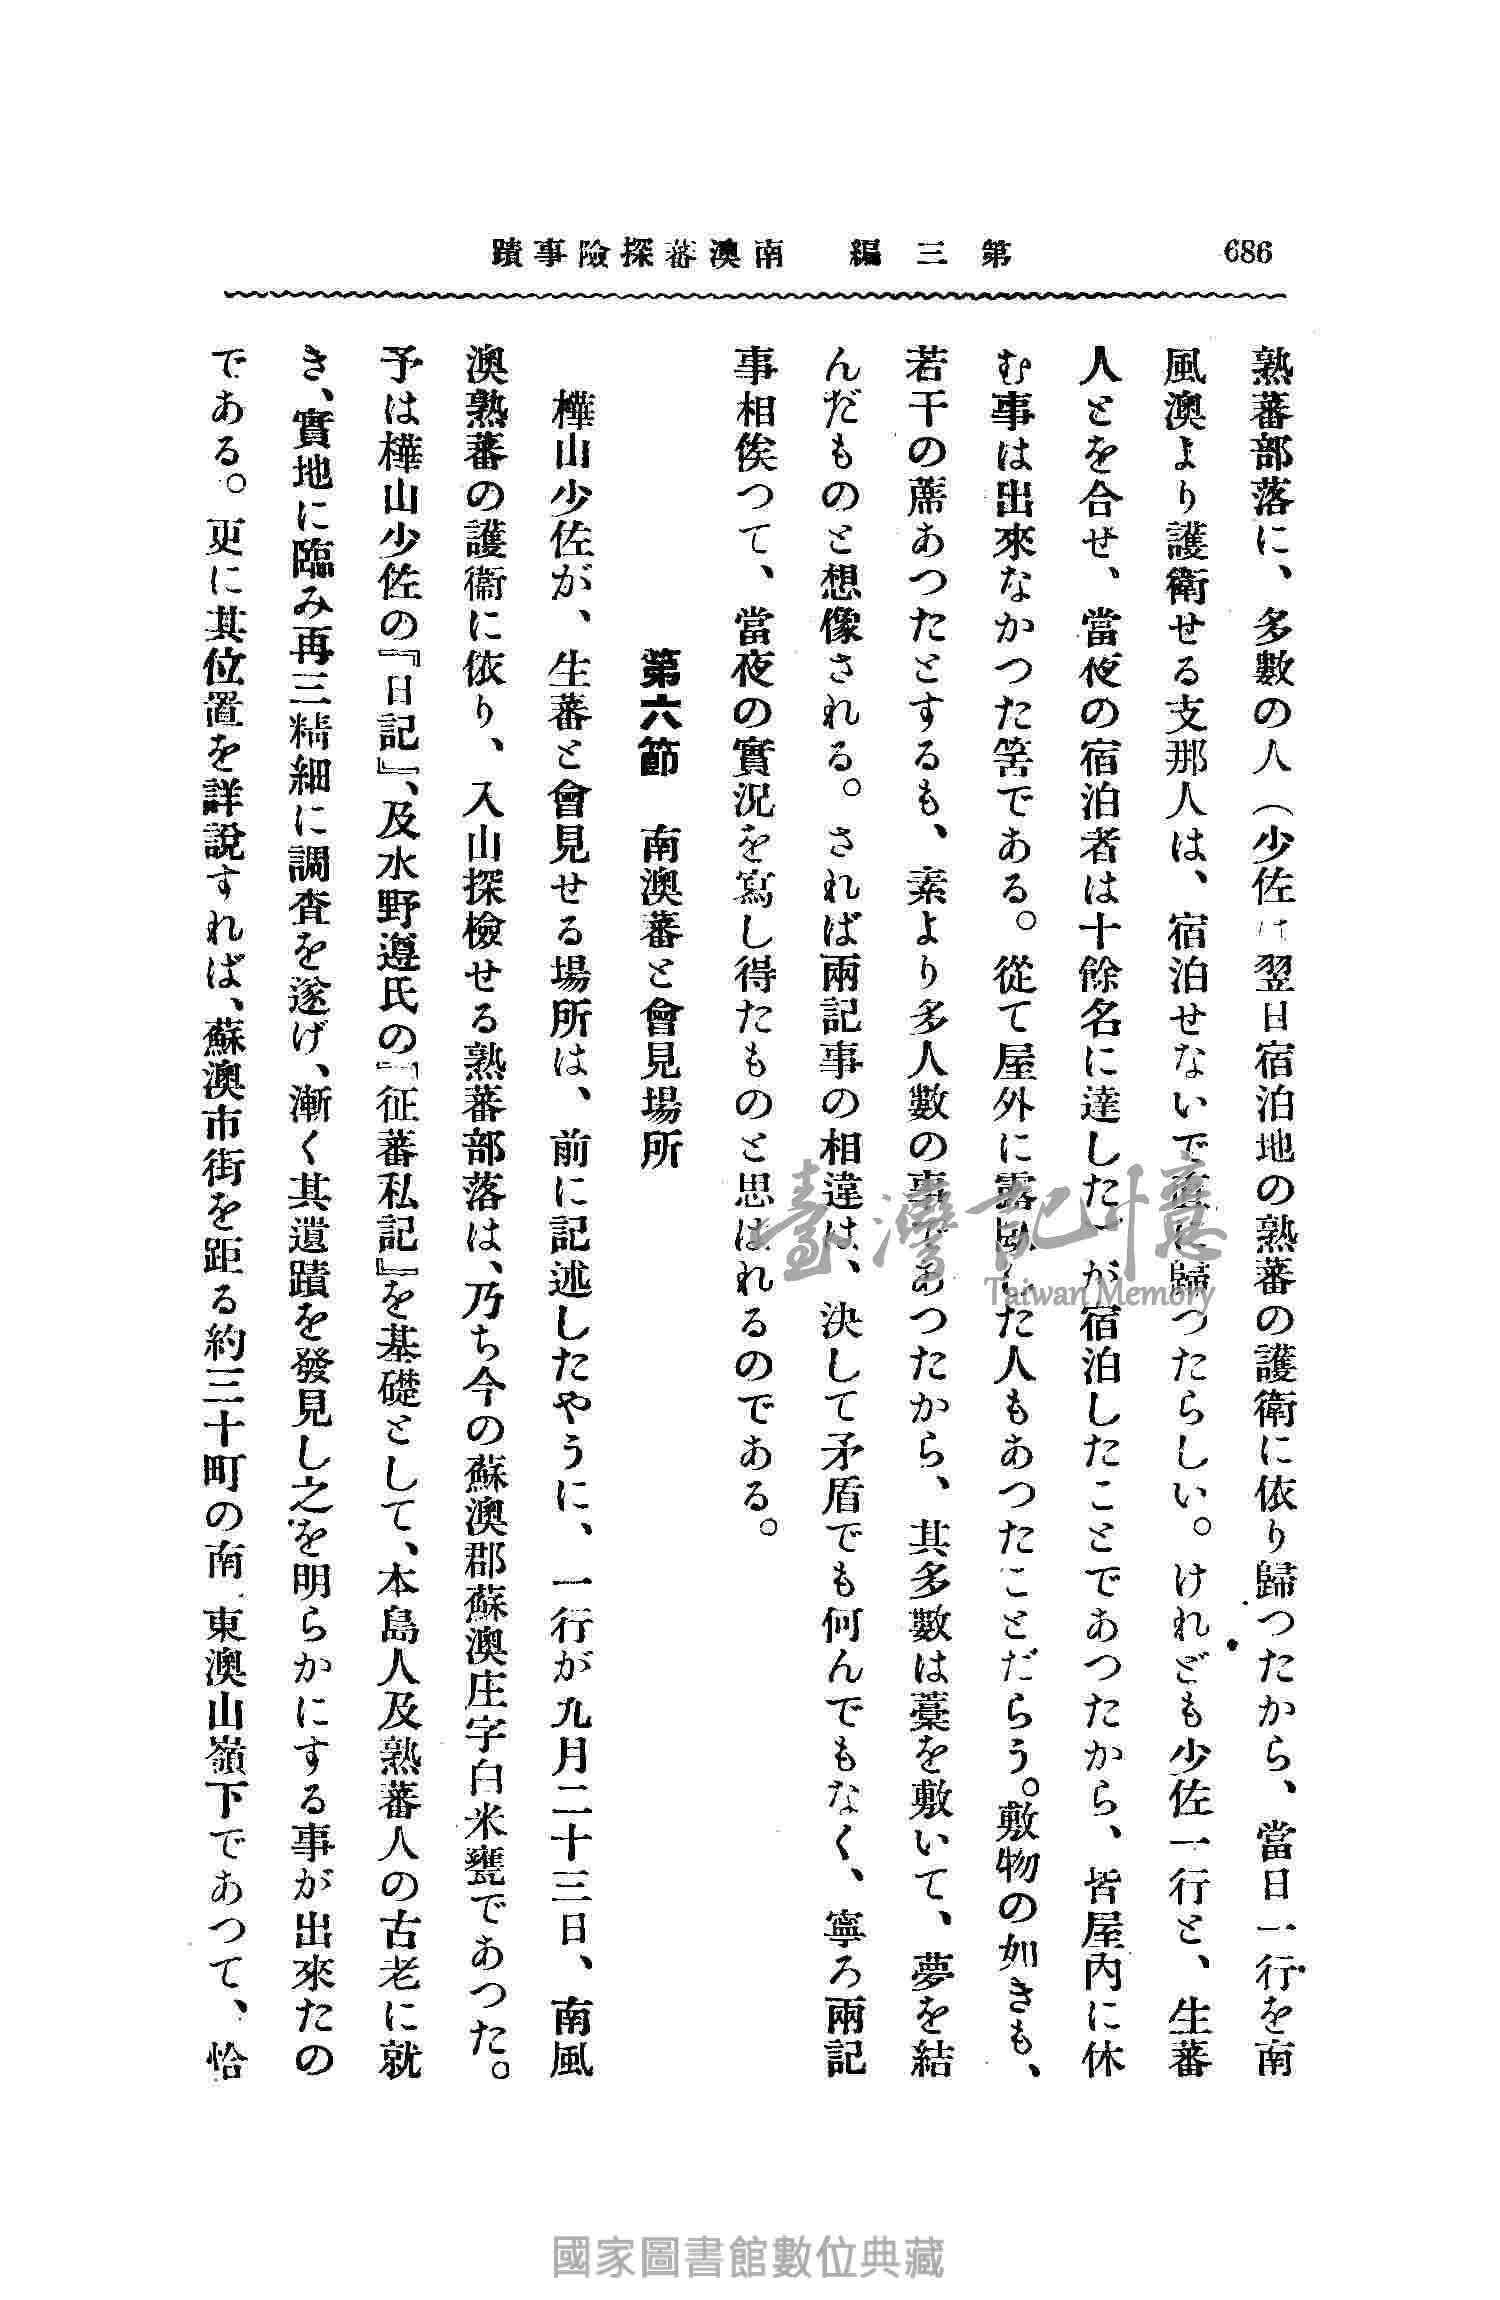 686
第三編　南澳蕃探險事蹟
熟蕃部落に、多數の人（少佐は翌日宿泊地の熟蕃の護衛に依り歸つたから、當日一行を南
風澳より護衛せる支那人は、宿泊せないで直に歸つたらしい。けれども少佐一行と、生蕃
人とを合せ、當夜の宿泊者は十餘名に達した）が宿泊したことであつたから、皆屋內に休
む事は出來なかつた筈である。從て屋外に露臥した人もあつたことだらう。敷物の如きも、
若干の蓆あつたとするも、素より多人數の事であつたから、其多數は藁を敷いて、夢を結
んだものと想像される。されば兩記事の相違は、決して矛盾でも何んでもなく、寧ろ兩記
事相俟つて、當夜の實況を寫し得たものと思はれるのである。
第六節　南澳蕃と會見場所
樺山少佐が、生蕃と會見せる場所は、前に記述したやうに、一行が九月二十三日、南風
澳熟蕃の護衞に依り、入山探檢せる熟蕃部落は、乃ち今の蘇澳郡蘇澳庄字白米甕であつた。
予は樺山少佐の『日記』、及水野遵氏の『征蕃私記』を基礎として、本島人及熟蕃人の古老に就
き、實地に臨み再三精細に調査を遂げ、漸く其遺蹟を發見し之を明らかにする事が出來たの
である。更に其位置を詳說すれば、蘇澳市街を距る約三十町の南、東澳山嶺下であつて、恰
臺灣記憶
Taiwan Memory
國家圖書館數位典藏